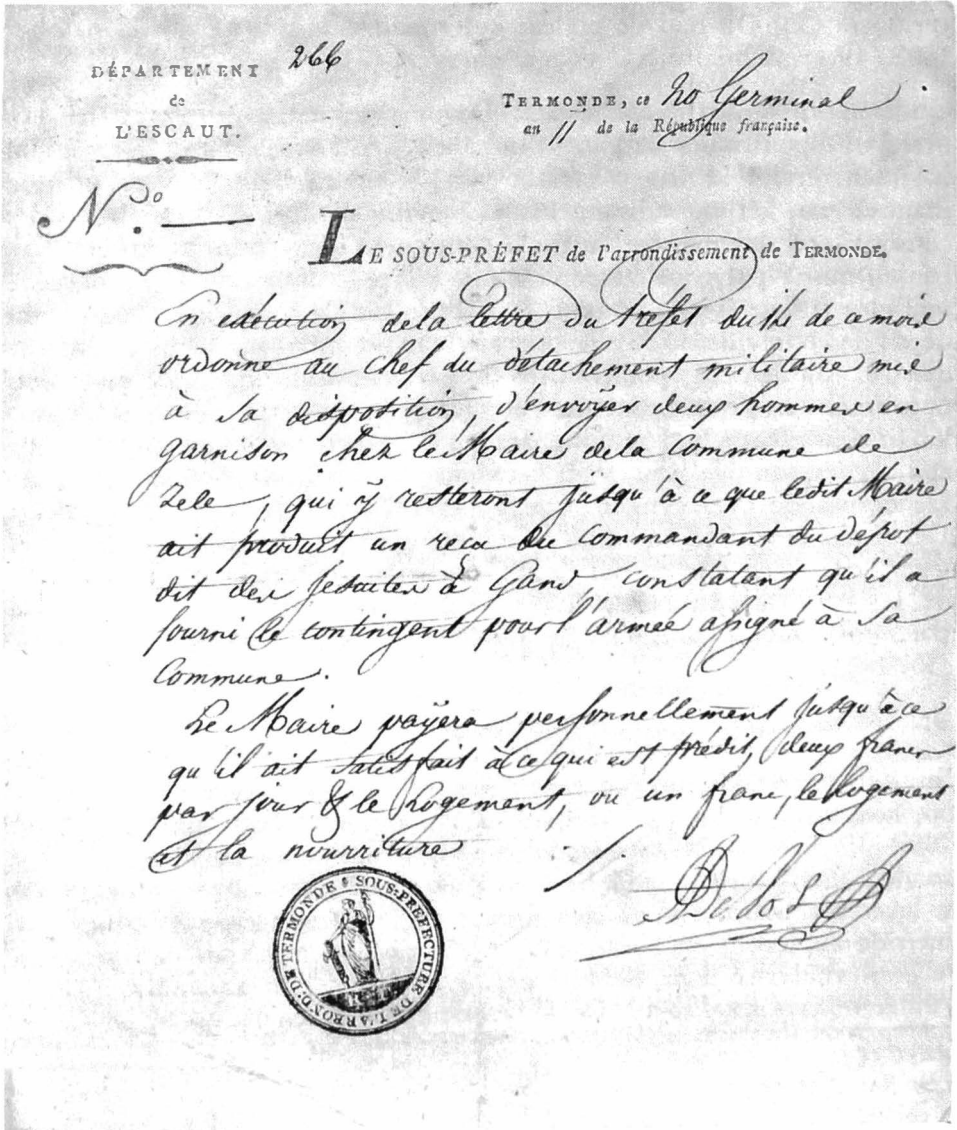 266
DÉPARTEMENT
de
L'ESCAUT.
TERMONDE, ce 20 Germinal
an 11 de la République française.
N.do
LE SOUS-PRÉFET de l'arrondissement de TERMONDE.
En exécution dela lettre du Préfet du de ce mois
ordonne au chef du détachement militaire mis
à sa disposition, d'envoÿer deux hommes en
garnison chez le Maire dela Commune de
Zele, qui ÿ resteront jusqu'à ce que ledit Maire
ait produit un recu du Commandant du dépot
dit des Jesuites à Gand, constatant qu'il a
fourni le contingent pour l'armée assigné à sa
Commune.
Le Maire paÿera personnellement jusqu'à ce
qu'il ait satisfait à ce qui est prédit, deux francs
par jour & le Logement, ou un franc, le logement
et la nourriture
SOUS-PREFECTURE DE L'ARROND.T DE TERMONDE